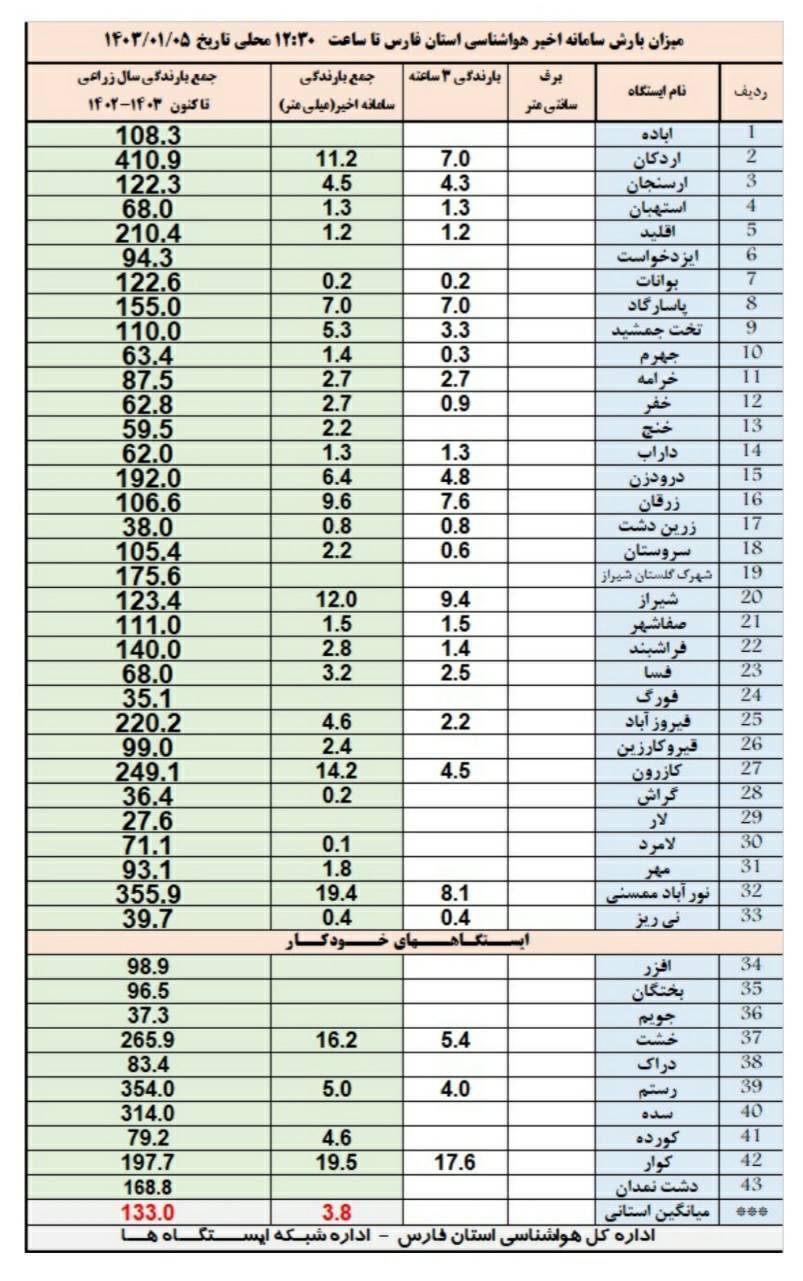 میزان بارش سامانه اخیر هواشناسی استان فارس تا ساعت ۱۲:۳۰ محلی تاریخ ۱۴۰۳/۰۱/۰۵
ردیف نام ایستگاه برف سانتی متر بارندگی ۳ ساعته جمع بارندگی سامانه اخیر(میلی متر) جمع بارندگی سال زراعی تا کنون ۱۴۰۳-۱۴۰۲
1 اباده 108.3
2 اردکان 7.0 11.2 410.9
3 ارسنجان 4.3 4.5 122.3
4 استهبان 1.3 1.3 68.0
5 اقلید 1.2 1.2 210.4
6 ایزدخواست 94.3
7 بوانات 0.2 0.2 122.6
8 پاسارگاد 7.0 7.0 155.0
9 تخت جمشید 3.3 5.3 110.0
10 جهرم 0.3 1.4 63.4
11 خرامه 2.7 2.7 87.5
12 خفر 0.9 2.7 62.8
13 خنج 2.2 59.5
14 داراب 1.3 1.3 62.0
15 درودزن 4.8 6.4 192.0
16 زرقان 7.6 9.6 106.6
17 زرین دشت 0.8 0.8 38.0
18 سروستان 0.6 2.2 105.4
19 شهرک گلستان شیراز 175.6
20 شیراز 9.4 12.0 123.4
21 صفاشهر 1.5 1.5 111.0
22 فراشبند 1.4 2.8 140.0
23 فسا 2.5 3.2 68.0
24 فورگ 35.1
25 فیروز آباد 2.2 4.6 220.2
26 قیروکارزین 2.4 99.0
27 کازرون 4.5 14.2 249.1
28 گراش 0.2 36.4
29 لار 27.6
30 لامرد 0.1 71.1
31 مهر 1.8 93.1
32 نور آباد ممسنی 8.1 19.4 355.9
33 نی ریز 0.4 0.4 39.7
ایستگاههای خودکار
34 افزر 98.9
35 بختگان 96.5
36 جویم 37.3
37 خشت 5.4 16.2 265.9
38 دراک 83.4
39 رستم 4.0 5.0 354.0
40 سده 314.0
41 کورده 4.6 79.2
42 کوار 17.6 19.5 197.7
43 دشت نمدان 168.8
*** میانگین استانی 3.8 133.0
اداره کل هواشناسی استان فارس - اداره شبکه ایستگاه ها